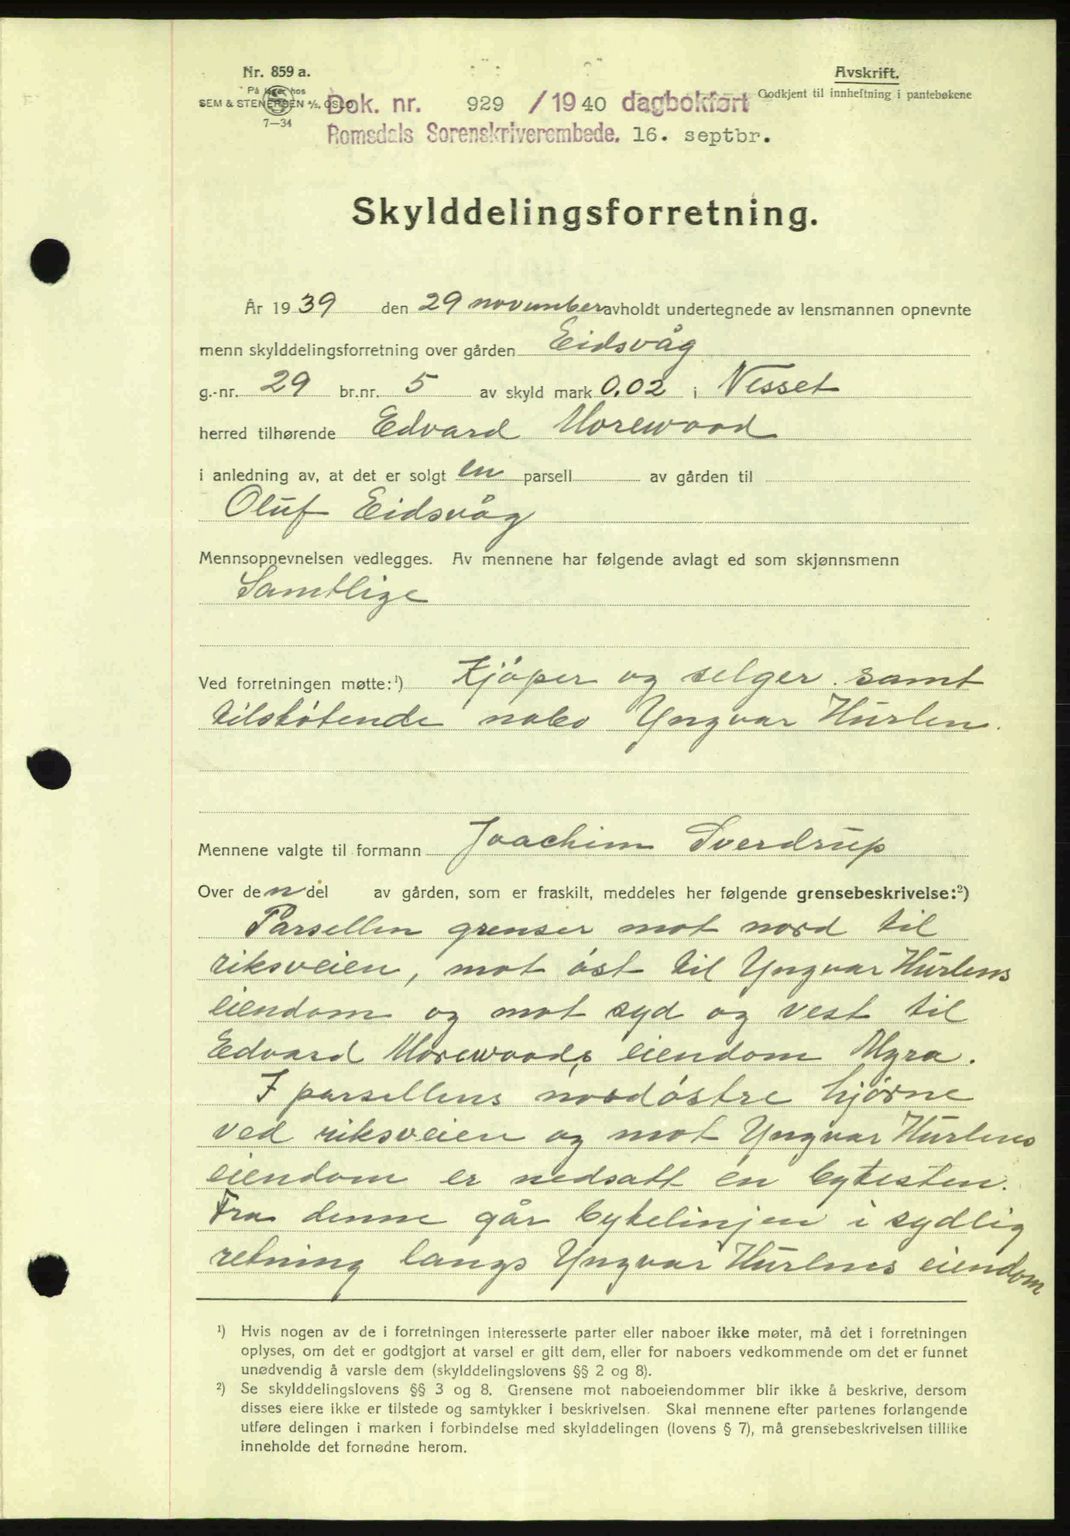 Nr. 859 a.
På lager hos
SEM & STENERSEN A/S, OSLO
7—34
Avskrift.
Godkjent til innheftning i pantebøkene
Dok. nr. 929 / 1940 dagbokført
Romsdals Sorenskriverembede. 16. septbr.
Skylddelingsforretning.
År 1939 den 29 november avholdt undertegnede av lensmannen opnevnte
menn skylddelingsforretning over gården Eidsvåg
g.-nr. 29 br.nr. 5 av skyld mark 0.02 i Nesset
herred tilhørende Edvard Morewood
i anledning av, at det er solgt en parsell av gården til
Oluf Eidsvåg
Mennsopnevnelsen vedlegges. Av mennene har følgende avlagt ed som skjønnsmenn
Samtlige
Ved forretningen møtte:¹) Kjöper og selger samt
tilstötende nabo Yngvar Hurlen.
Mennene valgte til formann Joachim Sverdrup
Over den del av gården, som er fraskilt, meddeles her følgende grensebeskrivelse:²)
Parsellen grenser mot nord til
riksveien, mot öst til Yngvar Hurlens
eiendom og mot syd og vest til
Edvard Morewoods eiendom Myra.
I parsellens nordöstre hjörne
ved riksveien og mot Yngvar Hurlens
eiendom er nedsatt en bytesten.
Fra denne går bytelinjen i sydlig
retning langs Yngvar Hurlens eiendom
¹) Hvis nogen av de i forretningen interesserte parter eller naboer ikke møter, må det i forretningen
oplyses, om det er godtgjort at varsel er gitt dem, eller for naboers vedkommende om det er funnet
unødvendig å varsle dem (skylddelingslovens §§ 2 og 8).
²) Se skylddelingslovens §§ 3 og 8. Grensene mot naboeiendommer blir ikke å beskrive, dersom
disses eiere ikke er tilstede og samtykker i beskrivelsen. Skal mennene efter partenes forlangende
utføre delingen i marken i forbindelse med skylddelingen (lovens § 7), må grensebeskrivelsen tillike
inneholde det fornødne herom.